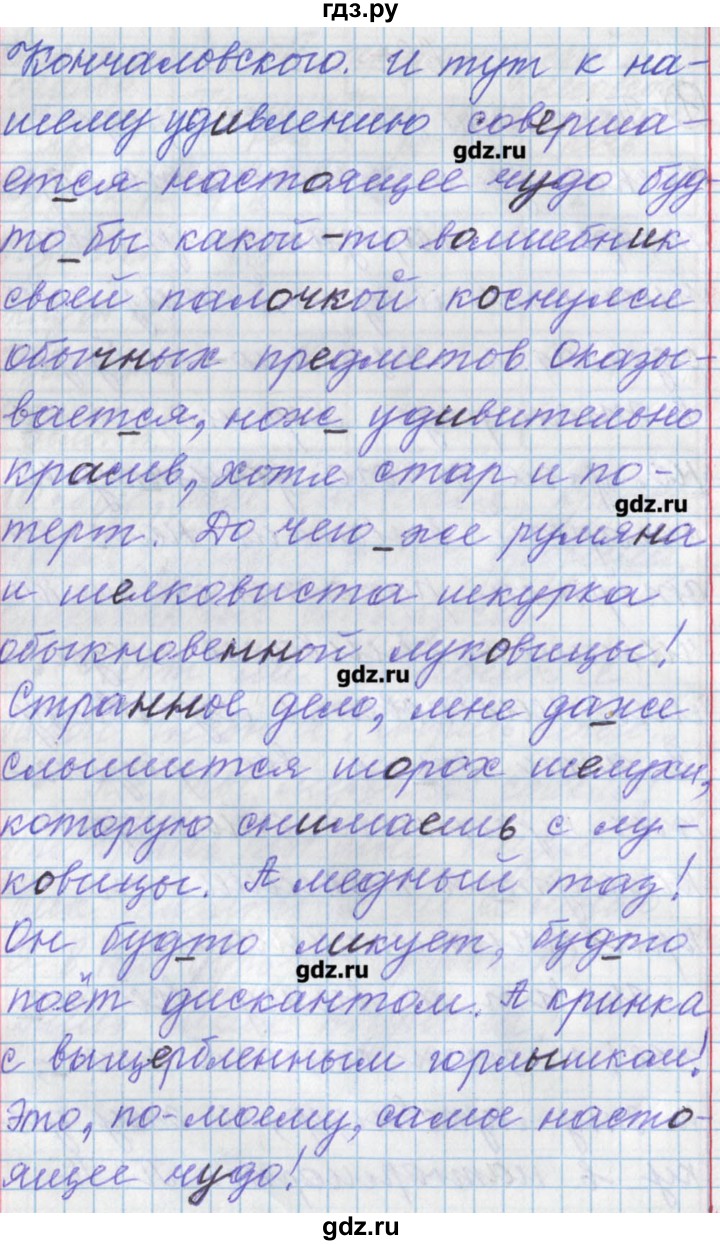 гдз.ру
Кончаловского. И тут к на-
шему удивлению соверша-
gdz.ru
ется настоящее чудо буд-
то бы какой-то волшебник
своей палочкой коснулся
обычных предметов. Оказы-
вается, нож удивительно
красив, хотя стар и по-
gdz.ru
терт. До чего же румяна
и шелковиста шкурка
обыкновенной луковицы!
gdz.ru
Странное дело, мне даже
слышится шорох шелухи,
которую снимаешь с лу-
ковицы. А медный таз!
Он будто ликует, будто
gdz.ru
поёт дискантом. А кринка
с выщербленным горлышком!
Это, по-моему, самое насто-
ящее чудо!
gdz.ru